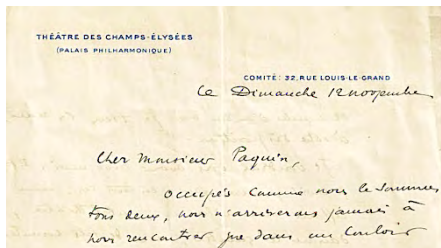 THÉÂTRE DES CHAMPS-ÉLYSÉES
(PALAIS PHILHARMONIQUE)
COMITÉ: 32, RUE LOUIS-LE-GRAND
Le Dimanche 12 novembre
Cher Monsieur Paquin,
Occupés comme nous le sommes
tous deux, nous n'arriverons jamais à
nous rencontrer que dans un couloir